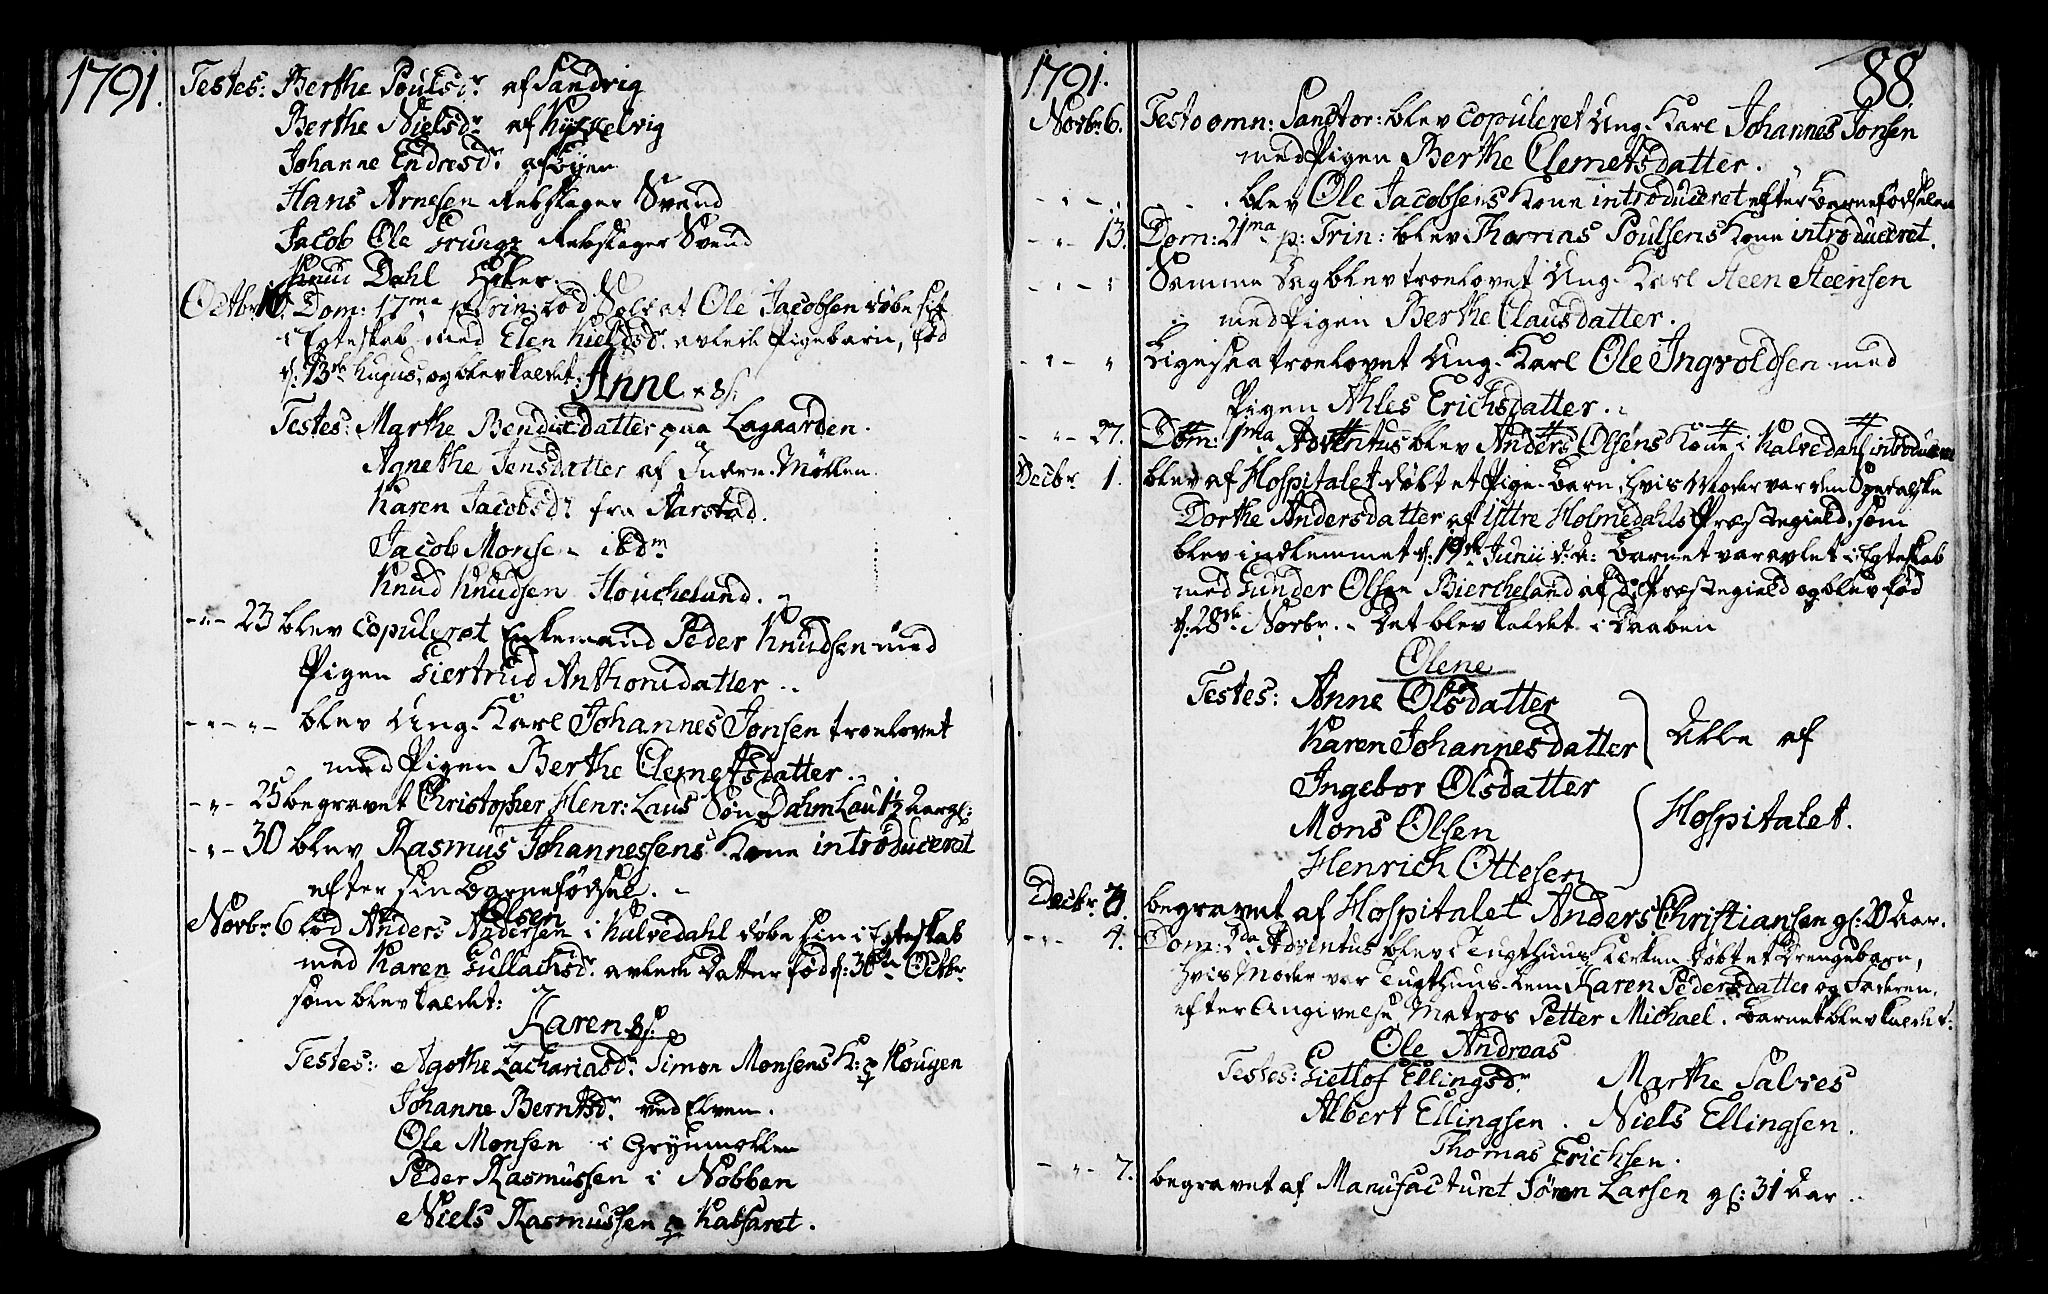 1791.
Testes: Berthe Poulsdr af Sandvig
Berthe Nielsdr af Kysselvig
Johanne Endresdr af Øyen
Hans Arnesen Rebslager Svend
Jacob Ole Grungs Rebslager Svend
Knud Dahl
Octbr 16. Dom: 17ma p Trin: lod Soldat Ole Jacobsen døbe sit
i Egteskab med Elen Kieldsdr avlede Pigebarn, fød
d: 13de hujus, og blev kaldet:
Anne
Testes: Marthe Bendixdatter paa Lagaarden.
Agnethe Jensdatter af Indre-Møllen
Karen Jacobsdr fra Aarstad.
Jacob Monsen ibdm
Knud Knudsen Houcheland.
-"- 23 blev copuleret Enkemand Peder Knudsen med
Pigen Giertrud Anthonidatter
-"-"- blev Ung-Karl Johannes Jonsen troelovet
med Pigen Berthe Clemetsdatter.
-"- 25 begravet Christopher Henr: Laus Søn Dahm Lau 1½ Aar gl:
-"- 30 blev Rasmus Johannessens Kone introduceret
efter sin Barnefødsel.
Novbr 6 lod Anders Andersen Olsen i Kalvedahl døbe sin i Egteskab
med Karen Gullachsdr avlede Datter fød d: 30te Octbr
som blev kaldet:
Karen
Testes: Agothe Zachariasdr Simon Monsens K: p Hougen
Johanne Berntsdr ved Elven.
Ole Monsen i Grynmøllen
Peder Rasmussen i Nobben
Niels Rasmussen p Kalfaret.
1791.
88
Novbr 6. Festo omn: Sanctor: blev copuleret Ung-Karl Johannes Jonsen
med Pigen Berthe Clemetsdatter.
-"- blev Ole Jacobsens Kone introduceret efter Barnefødselen
-"- 13. Dom: 21ma p: Trin: blev Thomas Poulsens Kone introduceret.
-"- Samme Dag blev troelovet Ung-Karl Steen Steensen
med Pigen Berthe Clausdatter.
-"- " Ligesaa troelovet Ung-Karl Ole Ingvoldsen med
Pigen Ahles Erichsdatter.
-"- 27. Dom: 1ma Adventus blev Anders Olsens Kone i Kalvedahl introduceret
Decbr 1. blev af Hospitalet døbt et Pige-Barn, hvis Moder var den Spedalske
Dorthe Andersdatter af Yttre Holmedahls Præstegield, som
blev indlemmet d: 19de Junii d: A: Barnet var avlet i Egteskab
med Gunder Olsen Biercheland af do Præstegield og blev fød
d: 28de Novbr. Det blev kaldet i Daaben
Olene
Testes: Anne Olsdatter
Karen Johannesdatter
Ingebor Olsdatter
Mons Olsen
Henrich Ottesen
Alle af
Hospitalet.
Decbr 3. begravet af Hospitalet Anders Christiansen gl: 20 Aar.
-"- 4. Dom: 2da Adventus blev i Tugthuus Kirken døbt et Drengebarn,
hvis Moder var Tugthuus-Lem Karen Pedersdatter og Faderen,
efter Angivelse Matros Petter Michael. Barnet blev kaldet:
Ole Andreas
Testes: Gietlof Ellingsdr Marthe Salves
Albert Ellingsen. Niels Ellingsen.
Thomas Erichsen.
-"- 7. begravet af Manufacturet Søren Larsen gl: 31 Aar.